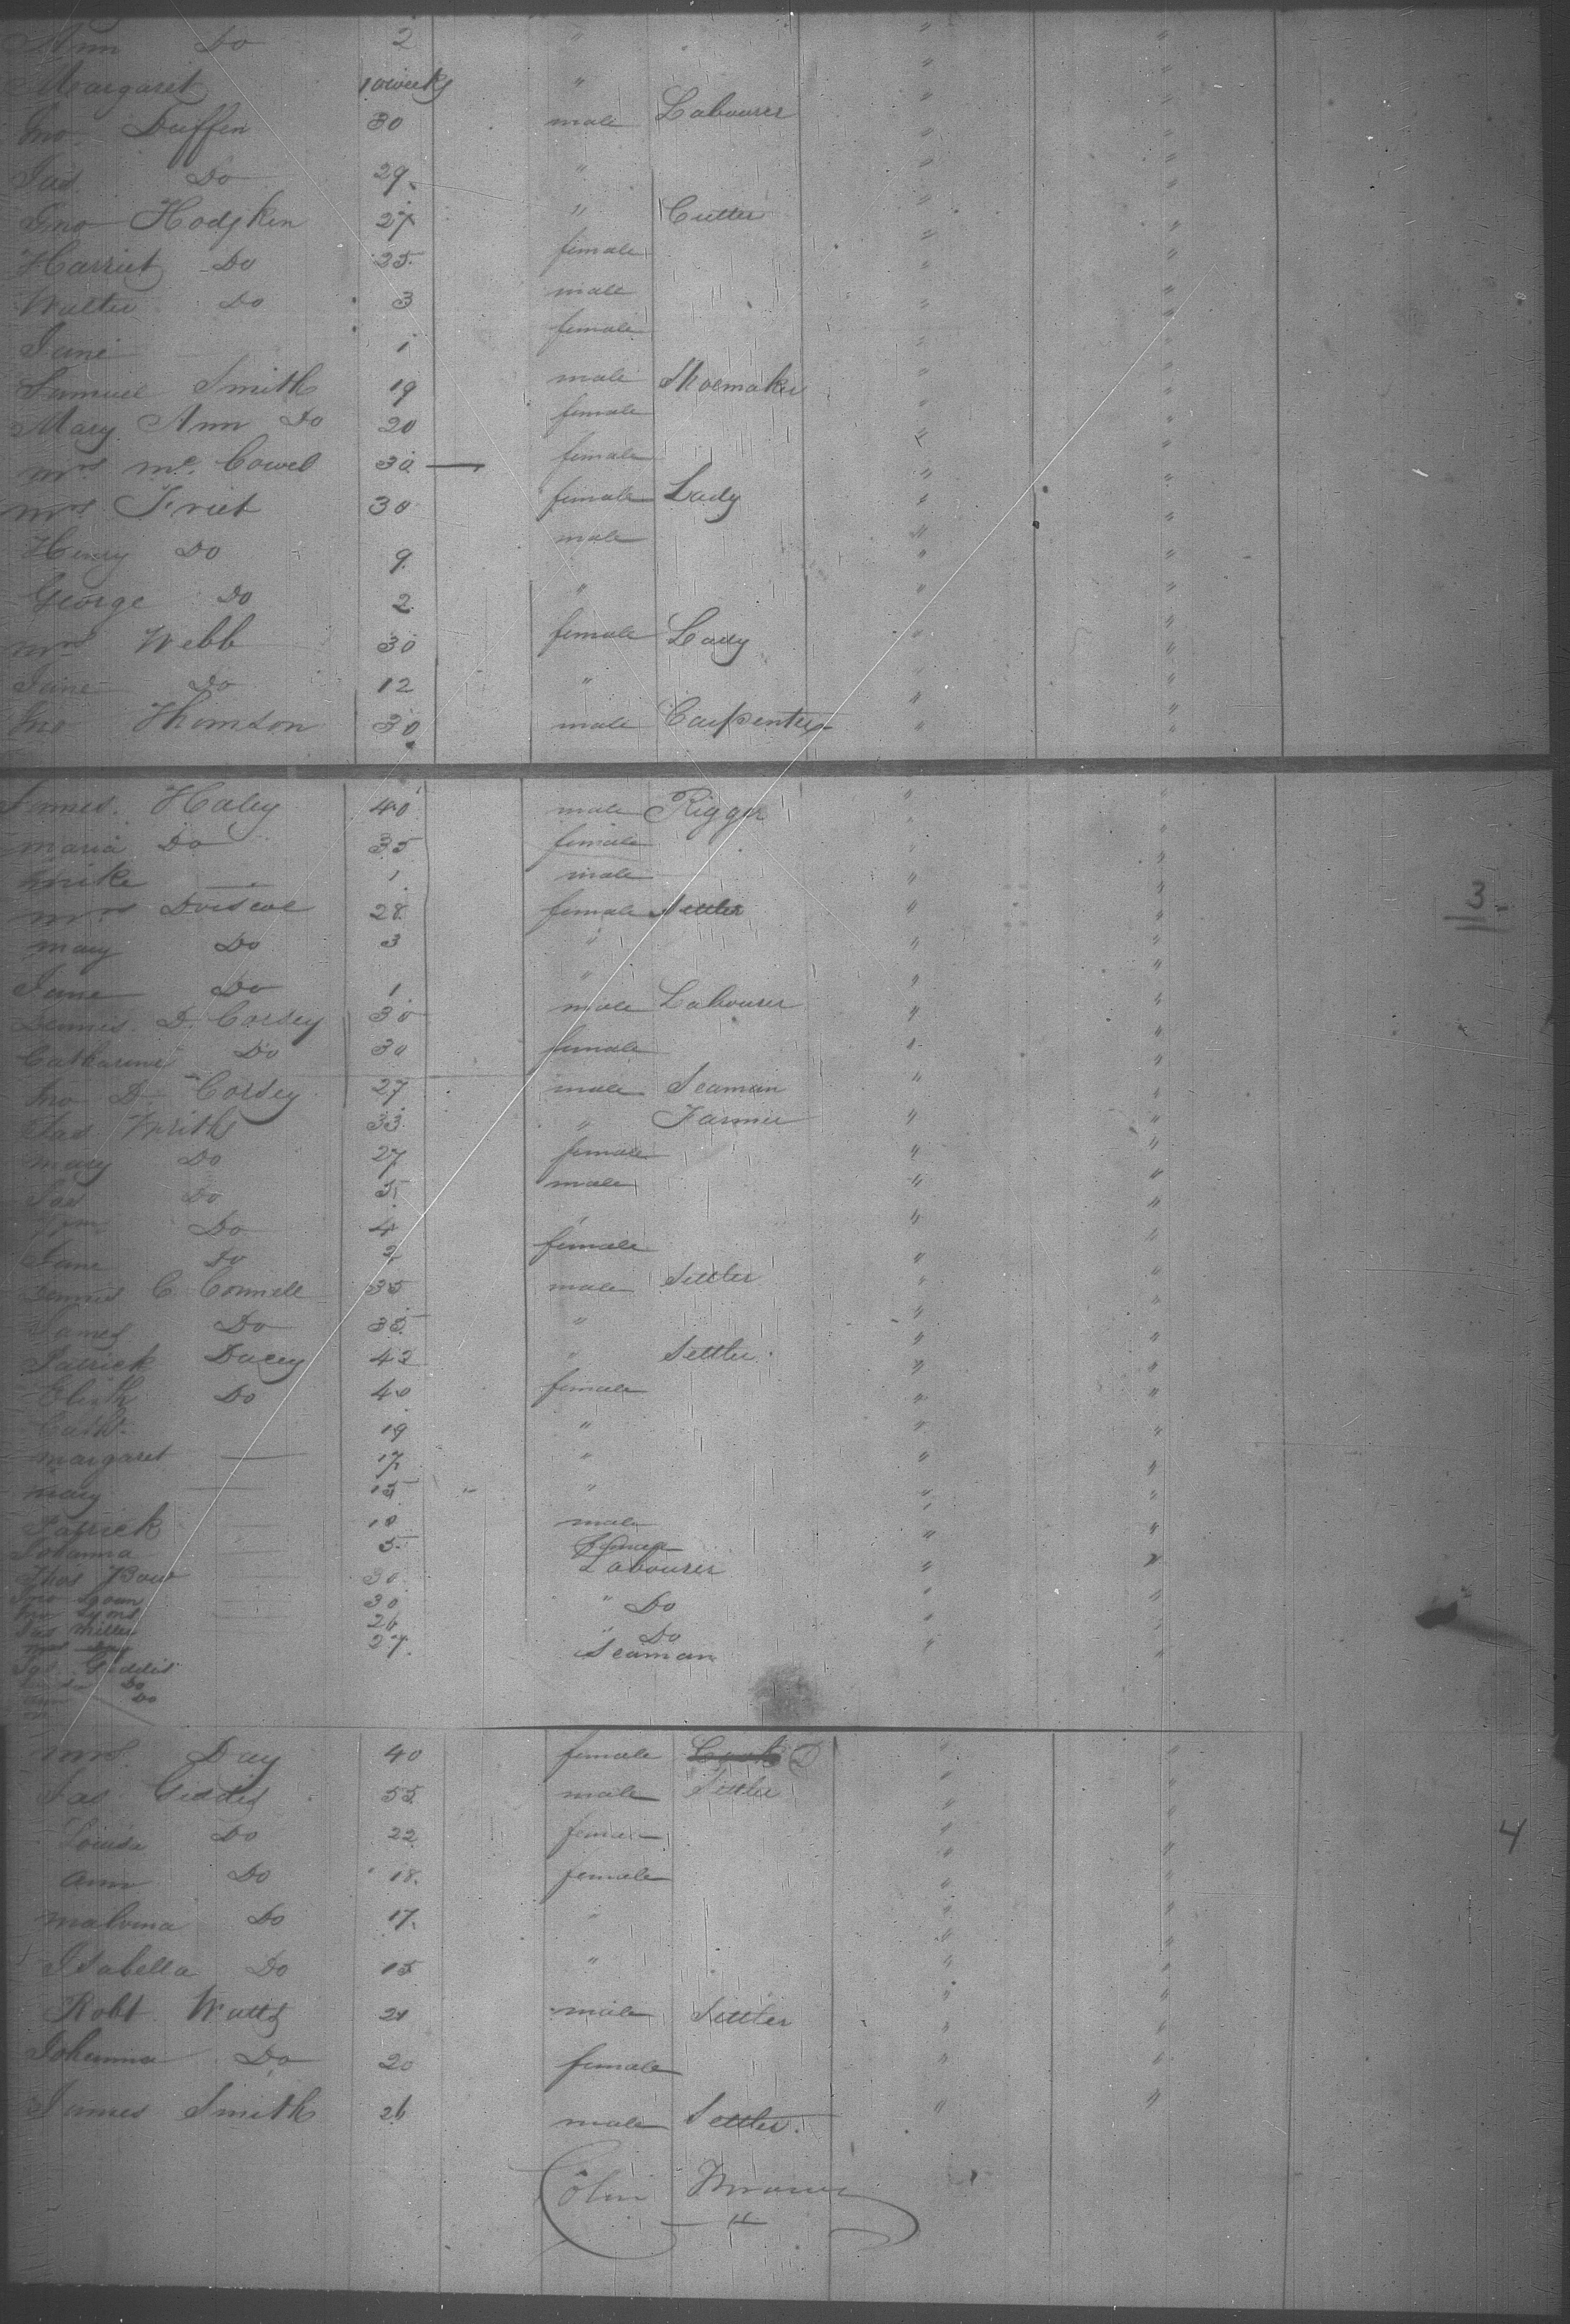 Ann Do 2 "  " "
Margaret 10 weeks " " "
Jno Duffin 30 male Labourer " "
Jas Do 29 " " "
Jno Hodgkin 27 " Cutter " "
Harriet Do 25 female " "
Walter Do 3 male " "
Jane 1 female " "
Samuel Smith 19 male Shoemaker " "
Mary Ann Do 20 female " "
Mrs Mc. Cowel 30 female " "
Mrs Friet 30 female Lady " "
Henry Do 9 male " "
George Do 2 " " "
Mrs Webb 30 female Lady " "
Jane Do 12 " " "
Jno Thomson 30 male Carpenter " "
James Haley 40 male Rigger " "
Maria Do 35 female " "
Mike — 1 male " "
3
Mrs Driscol 28 female Settler " "
Mary Do 3 " " "
Jane Do 1 " " "
Dennis D. Corsey 30 male Labourer " "
Catharine Do 30 female " "
Jno D. Corsey 27 male Seaman " "
Jas 33 " Farmer " "
Mary Do 27 female " "
Jas Do 5 male " "
Wm Do 4 " " "
Jane Do 2 female " "
Dennis C Connell 35 male Settler " "
James Do 35 " " "
Patrick Dacey 42 " Settler " "
Elizth Do 40 female " "
Cath. 19 " " "
Margaret — 17 " " "
Mary — 15 " " "
Patrick — 10 male " "
Johanna — 5 " "
Thos 30 Labourer " "
Jno 30 " Do " "
Jno Lyons 26 " Do " "
Jas Miller 27 Seaman " "
Jas Geddis
Do
Do
Mrs Day 40 female " "
Jas Geddes 55 male Settler " "
Louisa Do 22 female " "
4
Ann Do 18 female " "
Malvina Do 17 " " "
Isabella Do 15 " " "
Robt Watts 21 male Settler " "
Johanna Do 20 female " "
James Smith 26 male Settler " "
Colin